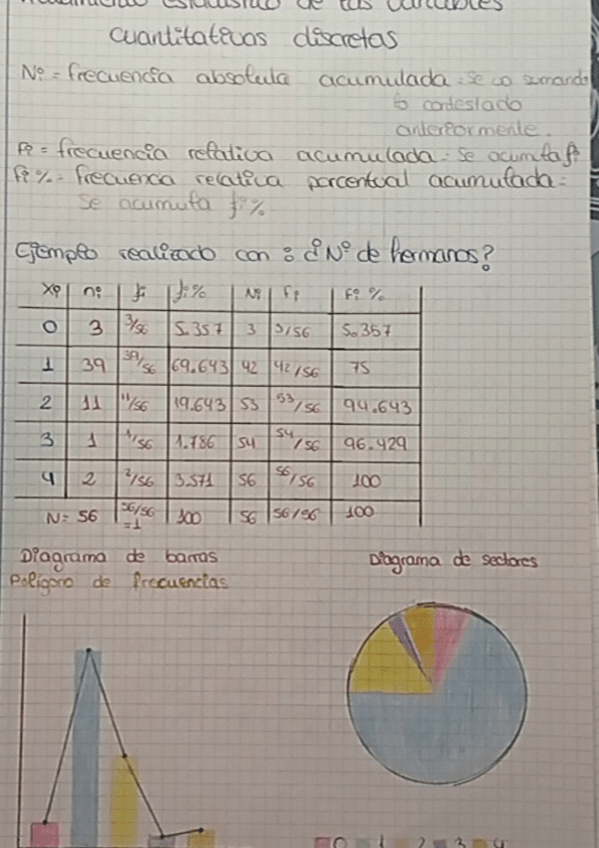 Tratamiento estadístico de las variables
cuantitativas discretas
Ni = frecuencia absoluta acumulada: se va sumando
lo contestado
anteriormente.
Fi = frecuencia relativa acumulada: se acumula fi
Fi % = frecuenca relativa porcentual acumulada =
se acumula fi %
Ejemplo realizado con: ¿Nº de hermanos?
xi ni fi fi% Ni Fi Fi %
0 3 3/56 5.357 3 3/56 5.357
1 39 39/56 69.643 42 42/56 75
2 11 11/56 19.643 53 53/56 94.643
3 1 1/56 1.786 54 54/56 96.429
4 2 2/56 3.571 56 56/56 100
N= 56 56/56 =1 100 56 56/56 100
Diagrama de barras Diagrama de sectores
Polígono de frecuencias
0 1 2 3 4